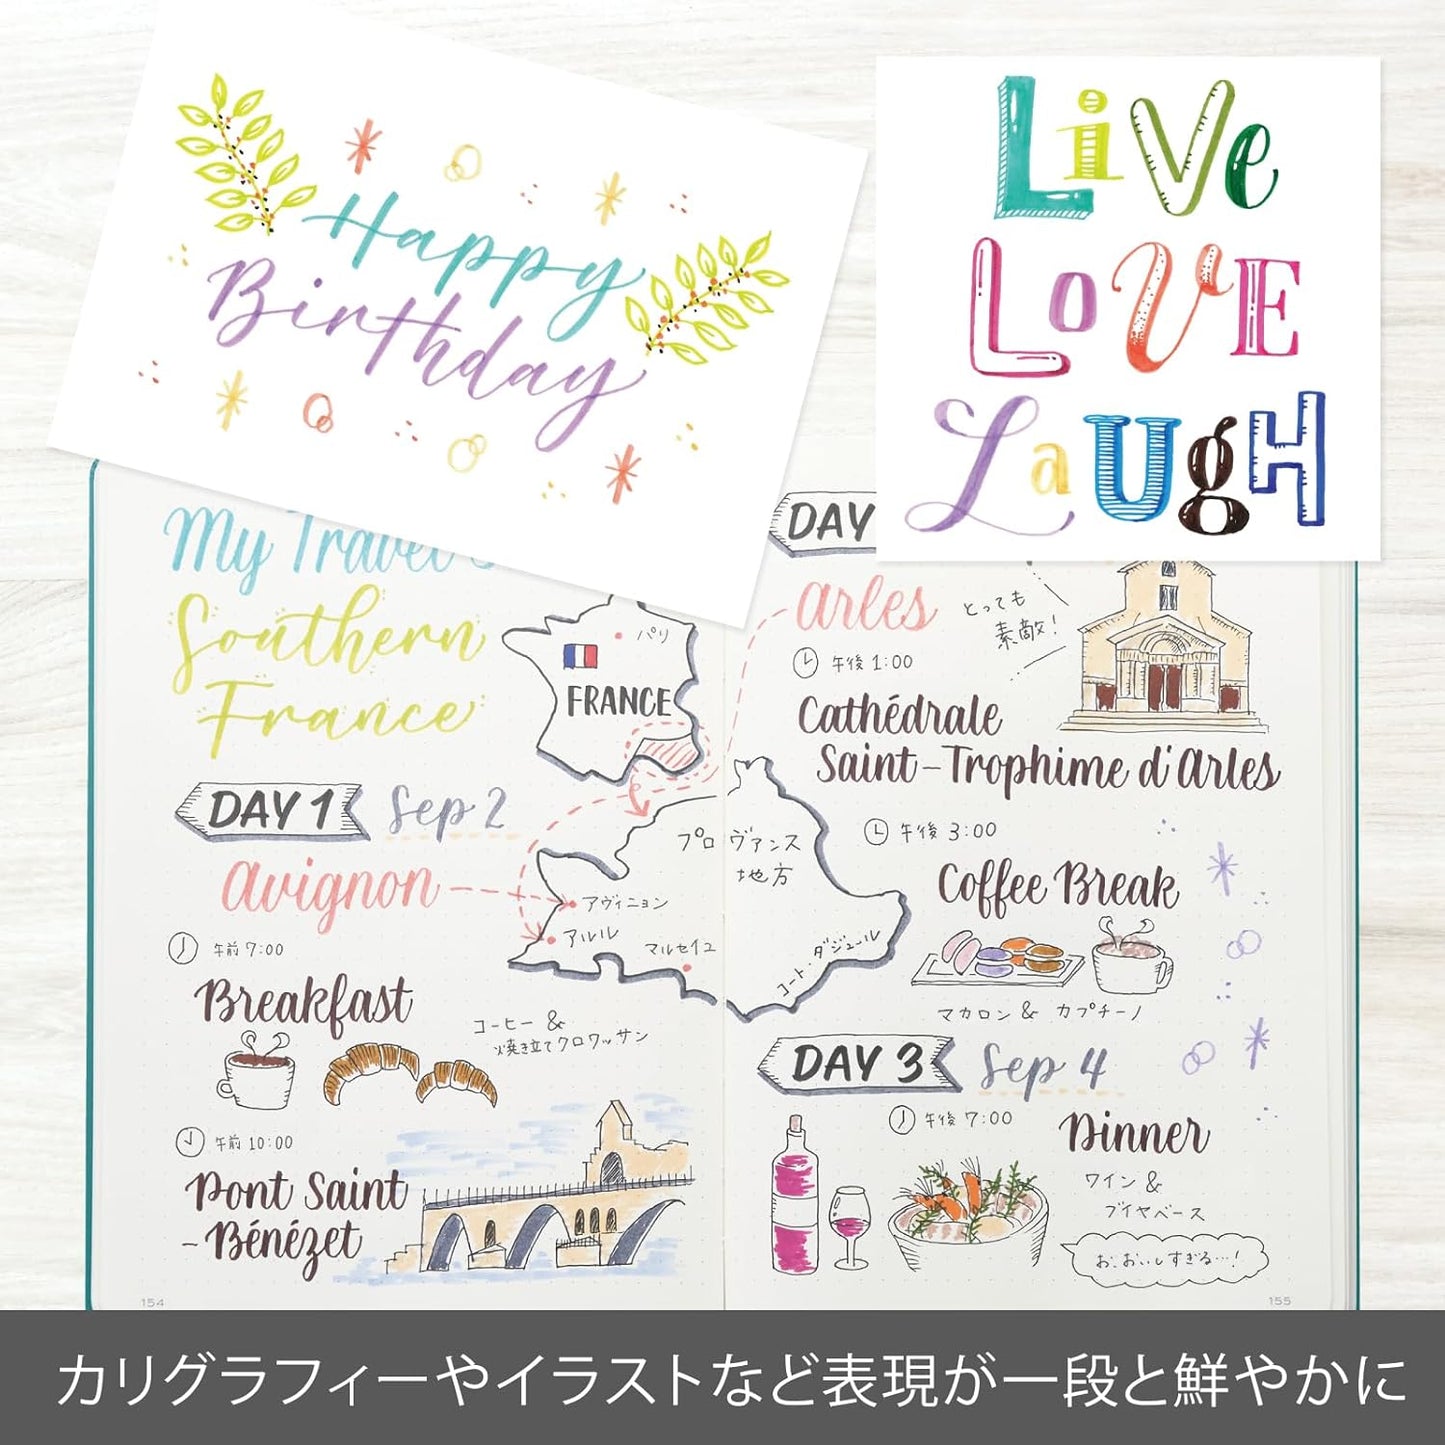 Happy
Birthday
Live
LoVE
LaUgH
My Travel
Southern
France
パリ
FRANCE
DAY 1 Sep 2
avignon
午前 7:00
Breakfast
コーヒー &
焼き立てクロワッサン
午前 10:00
Pont Saint
-Bénézet
プロヴァンス
地方
アヴィニョン
アルル
マルセイユ
コート・ダジュール
154
DAY
arles
とっても
素敵!
午後 1:00
Cathédrale
Saint-Trophime d'arles
午後 3:00
Coffee Break
マカロン & カプチーノ
DAY 3 Sep 4
午後 7:00
Dinner
ワイン &
ブイヤベース
お、おいしすぎる…!
155
カリグラフィーやイラストなど表現が一段と鮮やかに